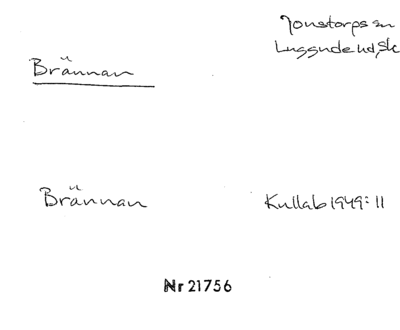 Jonstorps sn
Luggude hd, Sk
Brännan
Brännan
Kullab 1949:11
Nr 21756